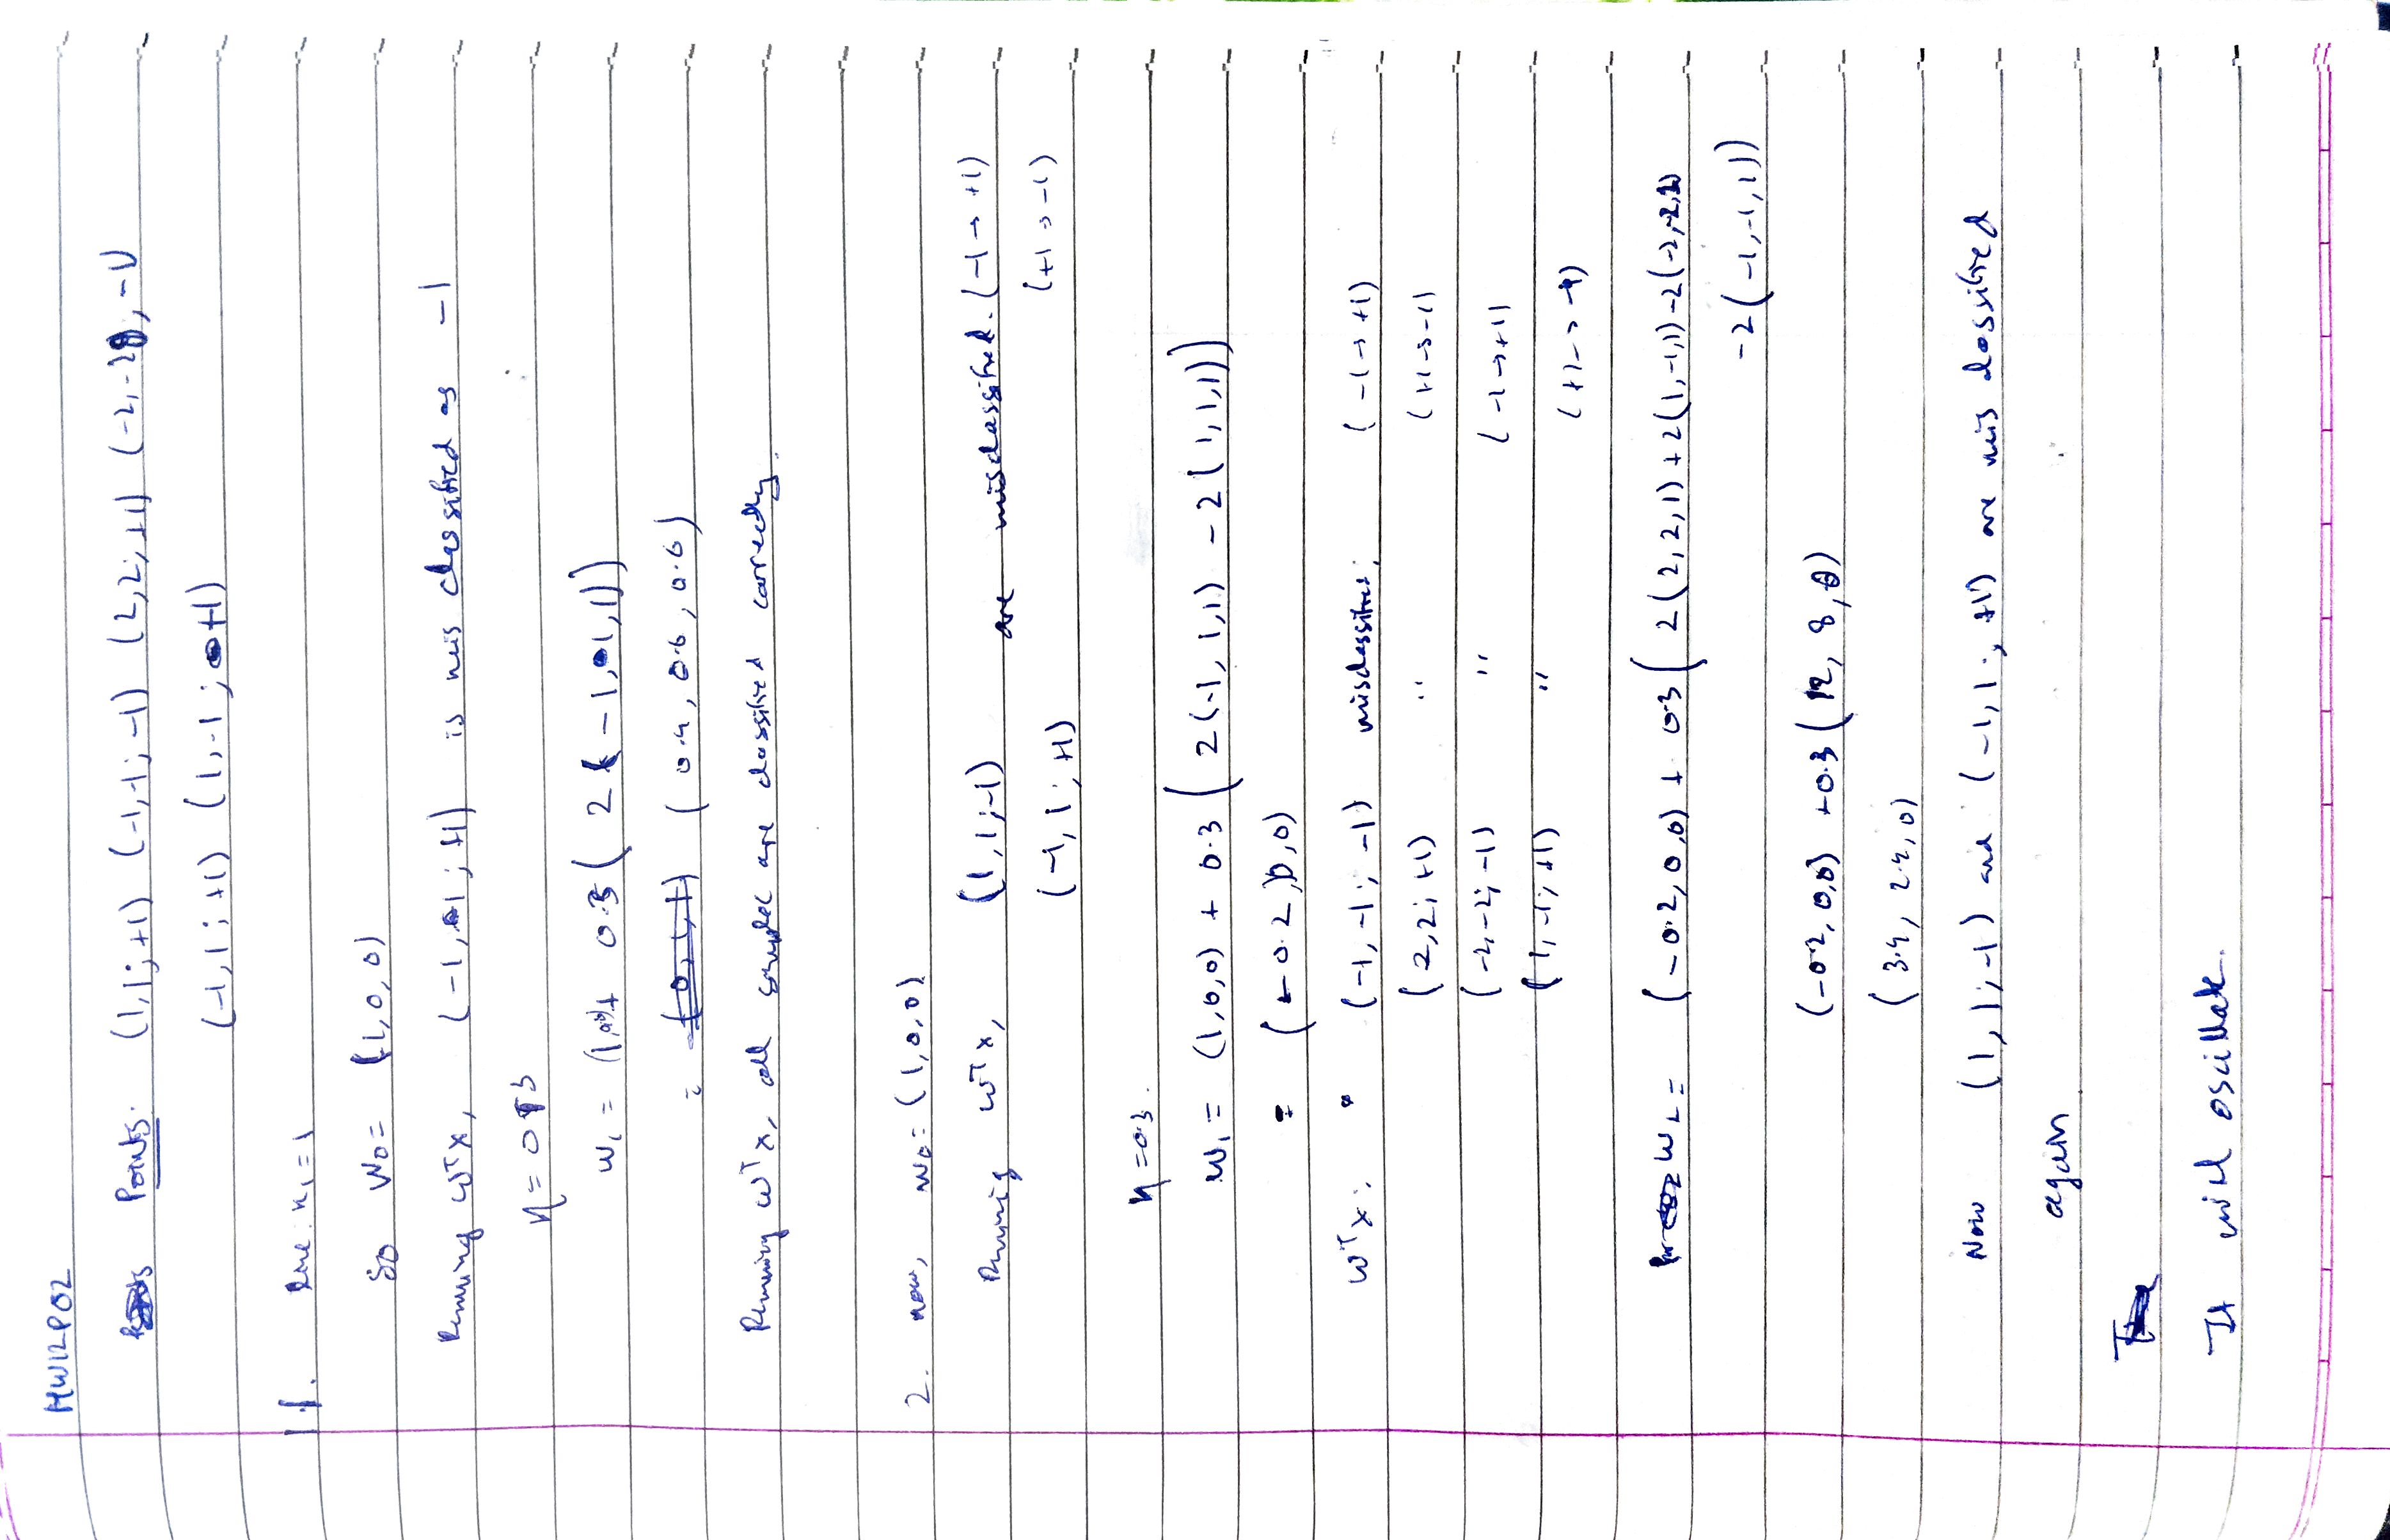 HW12P02
Points: (1,1;+1) (-1,-1;-1) (2,2;+1) (-2,-2;-1)
(-1,1;+1) (1,-1;+1)
1. Line: x₁=1
so W₀= (1,0,0)
Running wᵀx, (-1,1;+1) is misclassified as -1
η=0.3
w₁= (1,0,0)+ 0.3(2(-1,1,1))
= (0.4,0.6,0.6)
Running wᵀx, all samples are classified correctly.
2. now, w₀=(1,0,0)
Running wᵀx, (1,1;-1) are misclassified. (-1→+1)
(-1,1;+1) (+1→-1)
η=0.3.
w₁= (1,0,0) + 0.3(2(-1,1,1) -2(1,1,1))
= (-0.2,0,0)
wᵀx: (-1,-1;-1) misclassified. (-1→+1)
(2,2;+1) " (+1→-1)
(-2,-2;-1) " (-1→+1)
(1,-1;+1) " (+1→-1)
w₂= (-0.2,0,0)+ 0.3(2(2,2,1)+2(1,-1,1)-2(-2,-2,1)
-2(-1,-1,1))
(-0.2,0,0)+0.3(12,8,0)
(3.4,2.4,0)
Now (1,1;-1) and (-1,1;+1) are misclassified
again
It will oscillate.